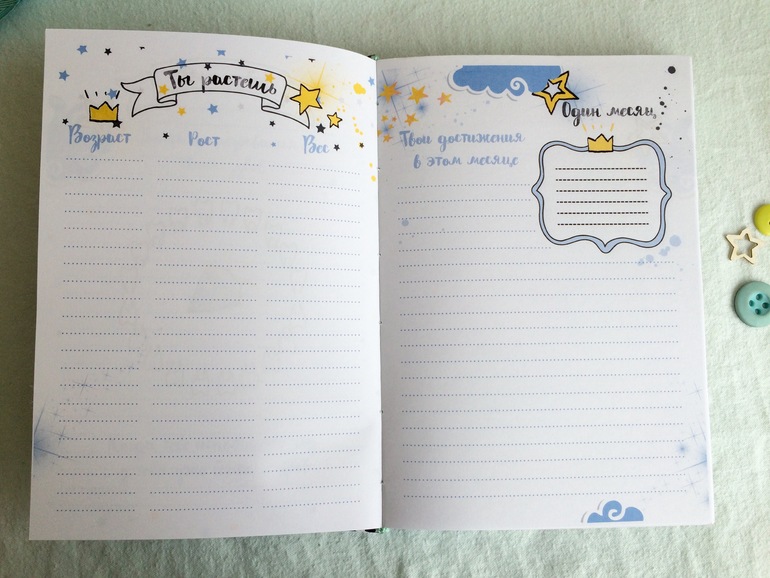 Ты растешь
Возраст Рост Вес
Один месяц
Твои достижения
в этом месяце